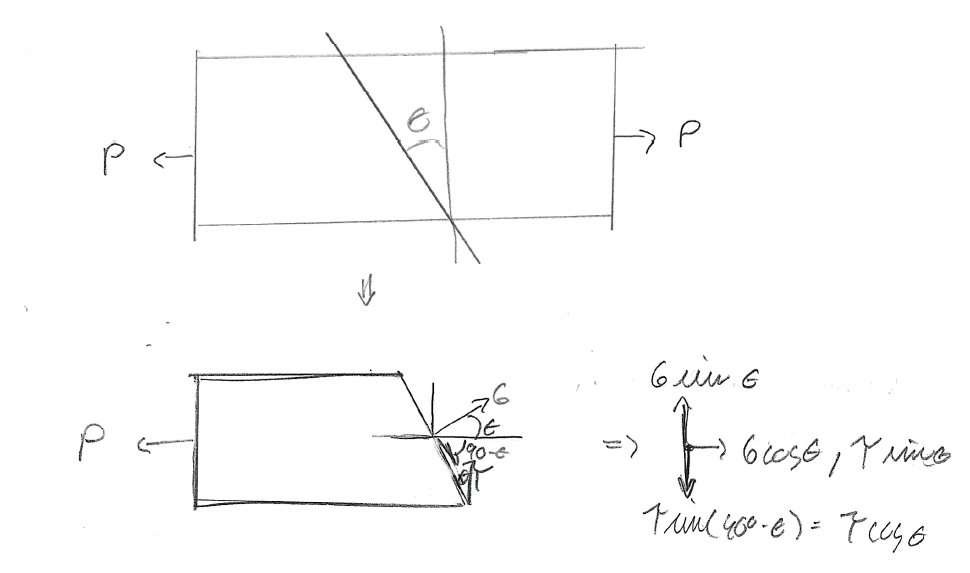 θ
P ← → P
⇓
σ
θ
P ←
90-θ
θ τ
σ sin θ
=> → σ cosθ, τ sinθ
τ sin(90°-θ) = τ cosθ